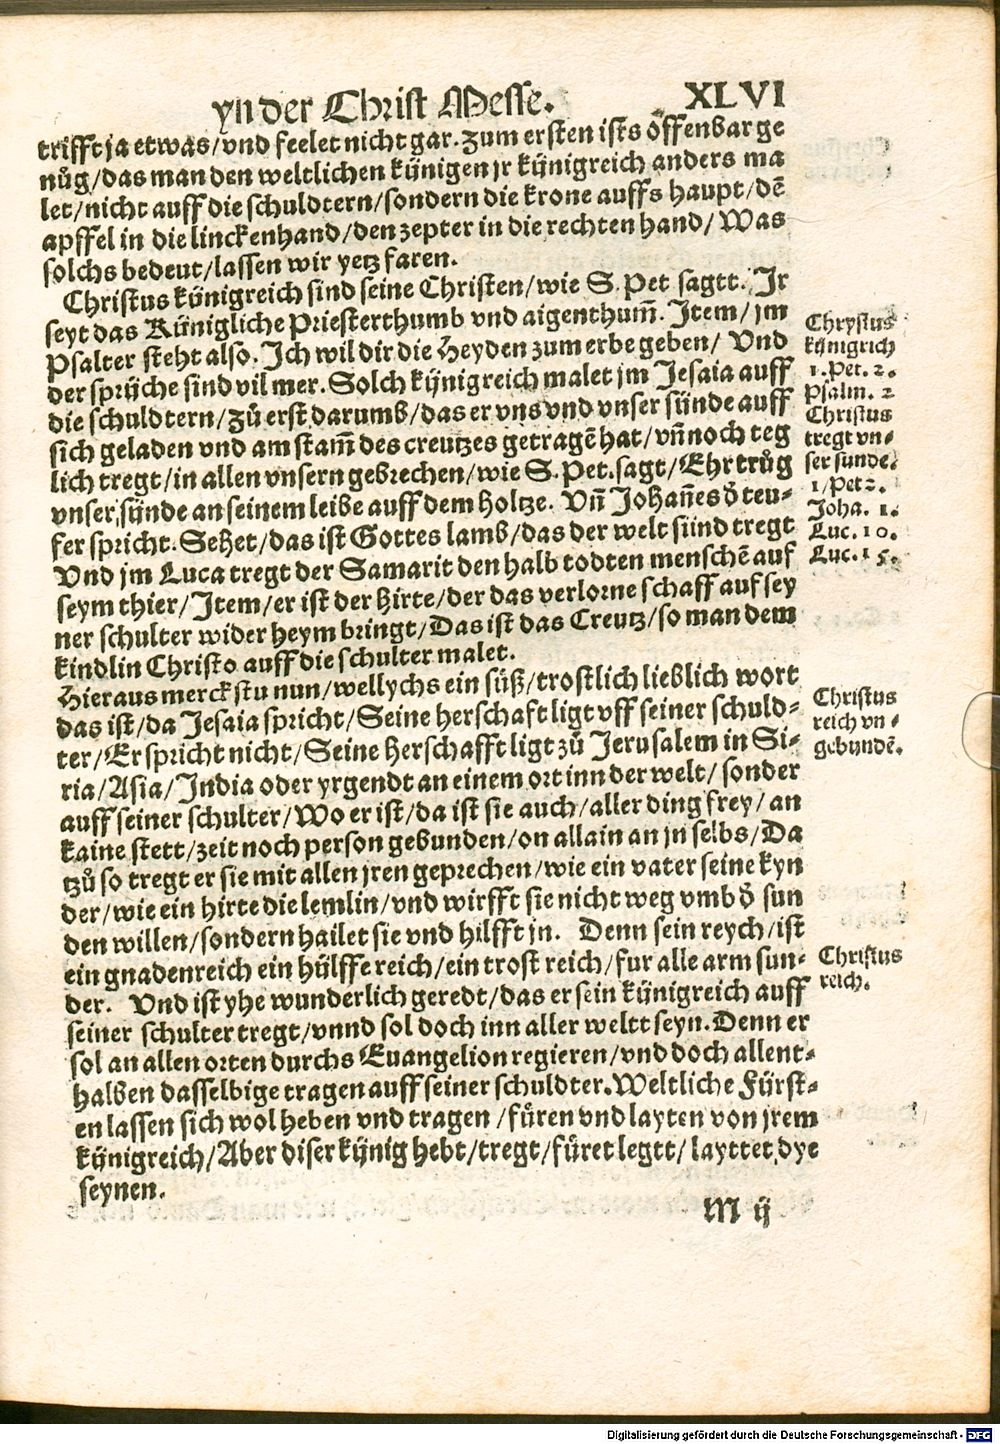 yn der Christ Messe. XLVI
trifft ja etwas/vnd feelet nicht gar. Zum ersten ists offenbar ge
nůg/das man den weltlichen künigen jr künigreich anders ma
let/nicht auff die schuldtern/sondern die krone auffs haupt/dē
apffel in die lincken hand/den zepter in die rechten hand/Was
solchs bedeut/lassen wir yetz faren.
Christus künigreich sind seine Christen/wie S. Pet sagtt. Jr
seyt das Künigliche Priesterthumb vnd aigenthum̄. Jtem/jm
Psalter steht also. Jch wil dir die Heyden zum erbe geben/ Vnd
der sprüche sind vil mer. Solch künigreich malet jm Jesaia auff
die schuldtern/Zů erst darumb/das er vns vnd vnser sünde auff
sich geladen vnd am stam̄ des creutzes getragē hat/vn̄ noch teg
lich tregt/in allen vnsern gebrechen/wie S. Pet. sagt/Ehr trůg
vnser sünde an seinem leibe auff dem holtze. Vn̄ Johan̄es d̓ teu-
fer spricht. Sehet/das ist Gottes lamb/das der welt sünd tregt
Vnd jm Luca tregt der Samarit den halb todten menschē auf
seym thier/Jtem/er ist der Hirte/der das verlorne schaff auf sey
ner schulter wider heym bringt/Das ist das Creutz/so man dem
kindlin Christo auff die schulter malet.
Hieraus merckstu nun/wellychs ein süß/trostlich lieblich wort
das ist/da Jesaia spricht/Seine herschaft ligt vff seiner schuld-
ter/Er spricht nicht/Seine herschafft ligt zů Jerusalem in Si-
ria/Asia/Jndia oder yrgendt an einem ort inn der welt/sonder
auff seiner schulter/Wo er ist/da ist sie auch/aller ding frey/an
kaine stett/zeit noch person gebunden/on allain an jn selbs/Da
tzů so tregt er sie mit allen jren geprechen/wie ein vater seine kyn
der/wie ein hirte die lemlin/vnd wirfft sie nicht weg vmb d̓ sun
den willen/sondern hailet sie vnd hilfft jn. Denn sein reych/ist
ein gnadenreich ein hülffe reich/ein trost reich/fur alle arm sun-
der. Vnd ist yhe wunderlich geredt/das er sein künigreich auff
seiner schulter tregt/vnnd sol doch inn aller weltt seyn. Denn er
sol an allen orten durchs Euangelion regieren/vnd doch allent-
halben dasselbige tragen auff seiner schuldter. Weltliche Fürst-
en lassen sich wol heben vnd tragen/füren vnd layten von jrem
künigreich/Aber diser künig hebt/tregt/füret legtt/layttet dye
seynen.
M ij
Chrystus
künigrich
1. Pet. 2.
Psalm. 2
Christus
tregt vn-
ser sunde.
1/Pet 2.
Joha. 1.
Luc. 10.
Luc. 15.
Christus
reich vn-
gebundē.
Christus
reich.
Digitalisierung gefördert durch die Deutsche Forschungsgemeinschaft - DFG